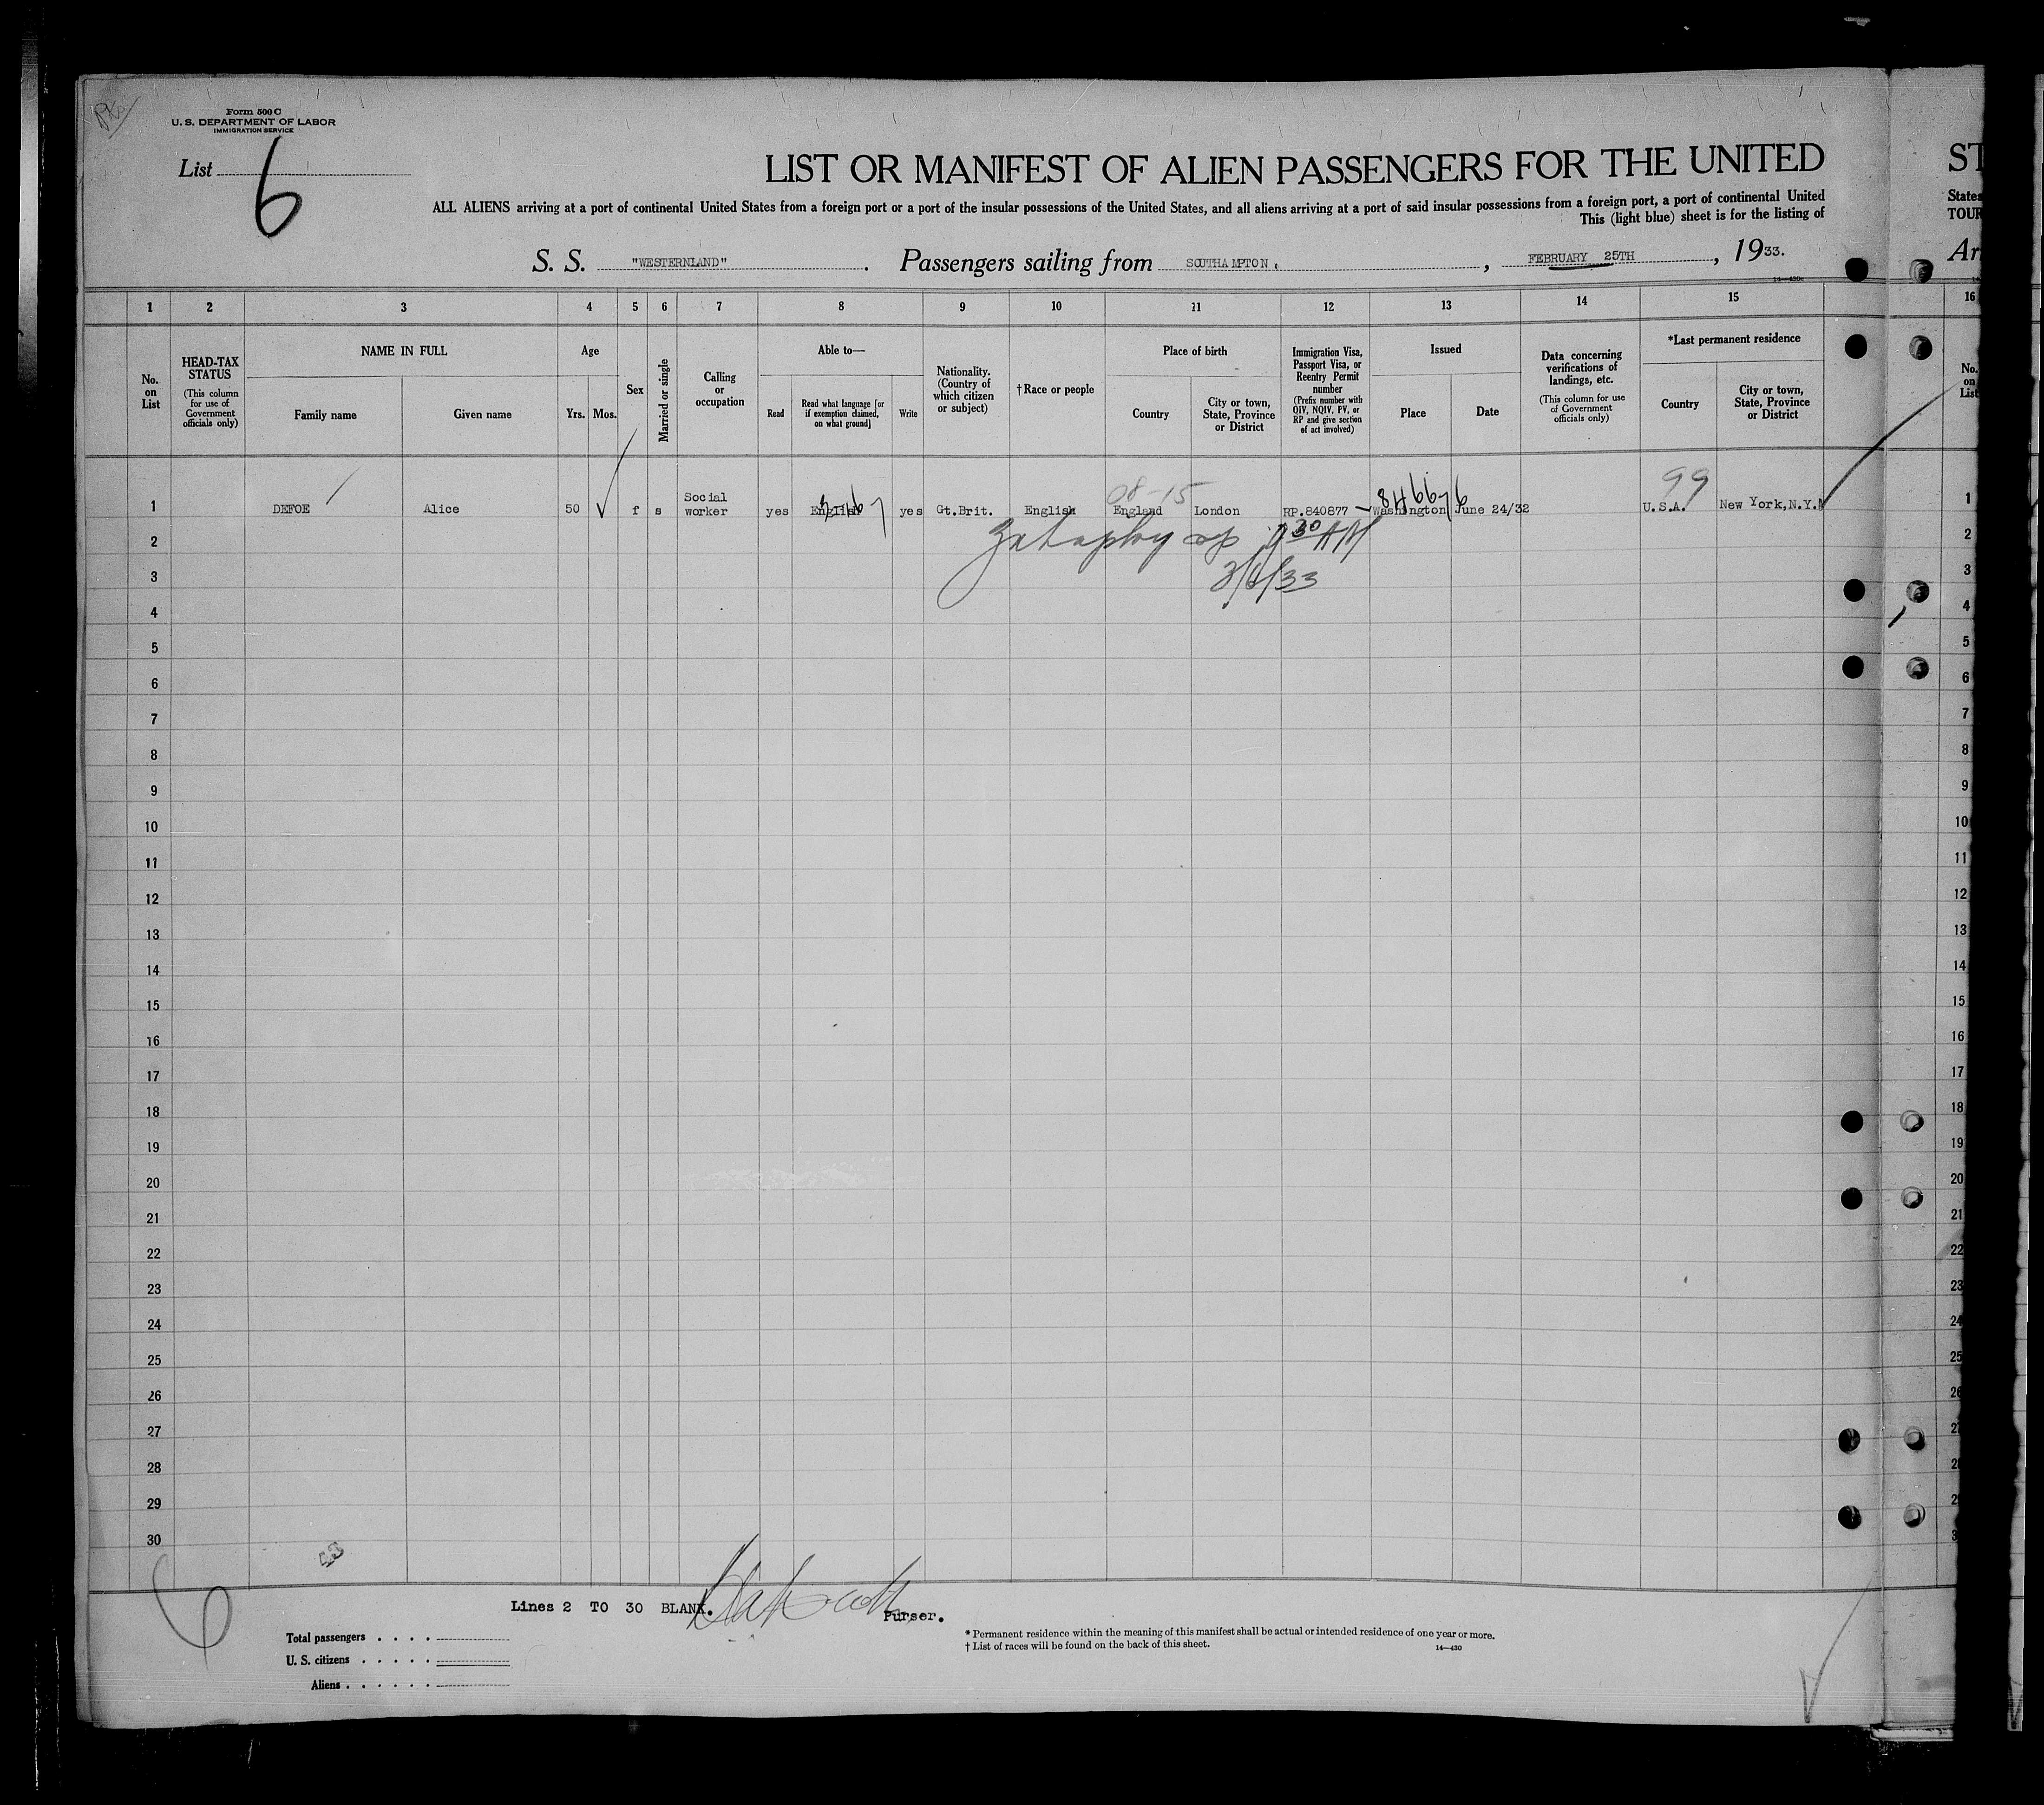 Form 500 C
U. S. DEPARTMENT OF LABOR
IMMIGRATION SERVICE
List 6
LIST OR MANIFEST OF ALIEN PASSENGERS FOR THE UNITED
ST
ALL ALIENS arriving at a port of continental United States from a foreign port or a port of the insular possessions of the United States, and all aliens arriving at a port of said insular possessions from a foreign port, a port of continental United
States
This (light blue) sheet is for the listing of
TOUR
S. S. "WESTERNLAND". Passengers sailing from SOUTHAMPTON, FEBRUARY 25TH, 1933.
Ar
14—430
1 2 3 4 5 6 7 8 9 10 11 12 13 14 15 16
No. on List
HEAD-TAX STATUS
(This column for use of Government officials only)
NAME IN FULL
Family name
Given name
Age
Yrs.
Mos.
Sex
Married or single
Calling or occupation
Able to—
Read
Read what language [or if exemption claimed, on what ground]
Write
Nationality. (Country of which citizen or subject)
† Race or people
Place of birth
Country
City or town, State, Province or District
Immigration Visa, Passport Visa, or Reentry Permit number
(Prefix number with QIV, NQIV, PV, or RP and give section of act involved)
Issued
Place
Date
Data concerning verifications of landings, etc.
(This column for use of Government officials only)
*Last permanent residence
Country
City or town, State, Province or District
No. on List
08-15
99
1 DEFOE Alice 50 f s Social worker yes English yes Gt.Brit. English England London RP.840877 Washington June 24/32 U.S.A. New York,N.Y. 1
2 7 30 AM 2
3 3/6/33 3
4 4
5 5
6 6
7 7
8 8
9 9
10 10
11 11
12 12
13 13
14 14
15 15
16 16
17 17
18 18
19 19
20 20
21 21
22 22
23 23
24 24
25 25
26
27
28
29
30
6
Lines 2 TO 30 BLANK.
Purser.
Total passengers . . . .
U. S. citizens . . . . .
Aliens . . . . . .
* Permanent residence within the meaning of this manifest shall be actual or intended residence of one year or more.
† List of races will be found on the back of this sheet.
14—430